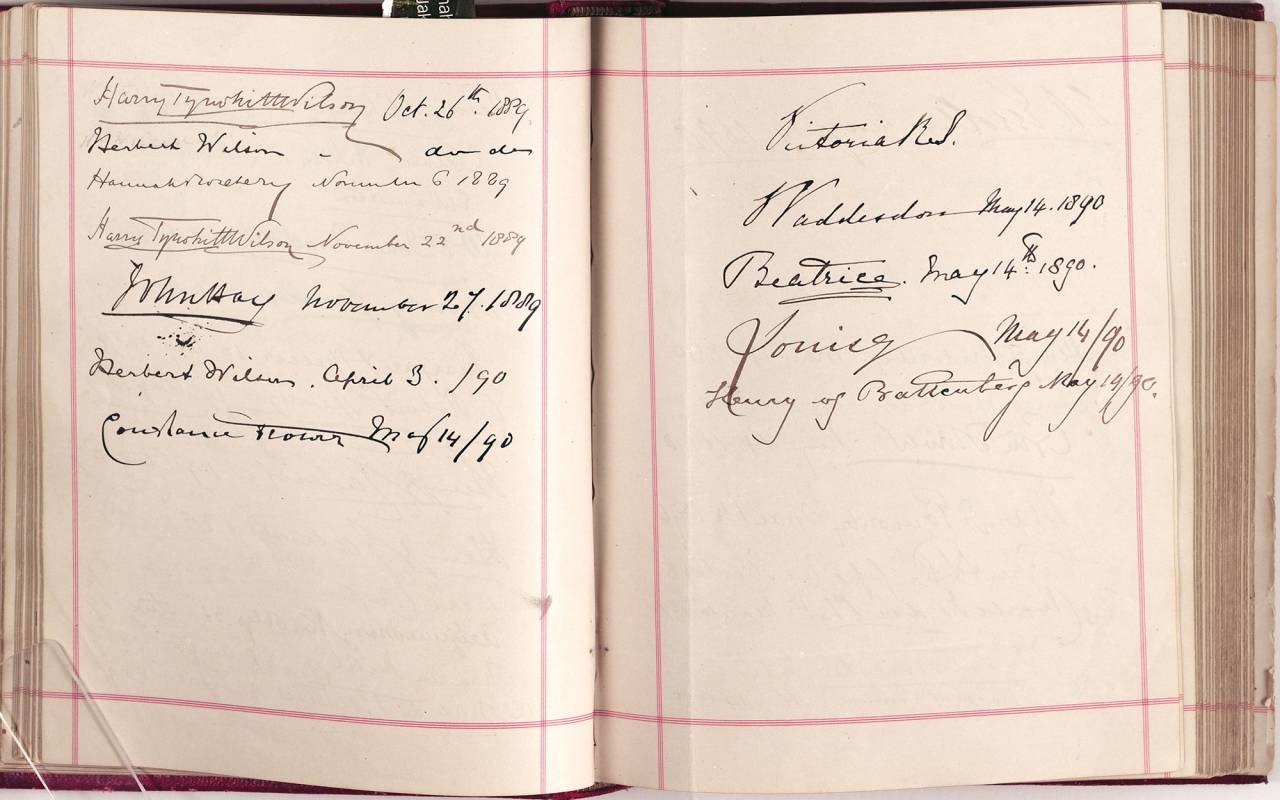 Harry Tyrwhitt Wilson Oct. 26th. 1889.
Herbert Wilson - do do
Hannah Rosebery November 6 1889
Harry Tyrwhitt Wilson November 22nd 1889
John Hay November 27. 1889
Herbert Wilson. April 3. /90
Constance Flower May 14/90
Victoria R.I.
Waddesdon May 14. 1890
Beatrice. May 14th. 1890.
Louise May 14/90
Henry of Battenberg May 14/90.